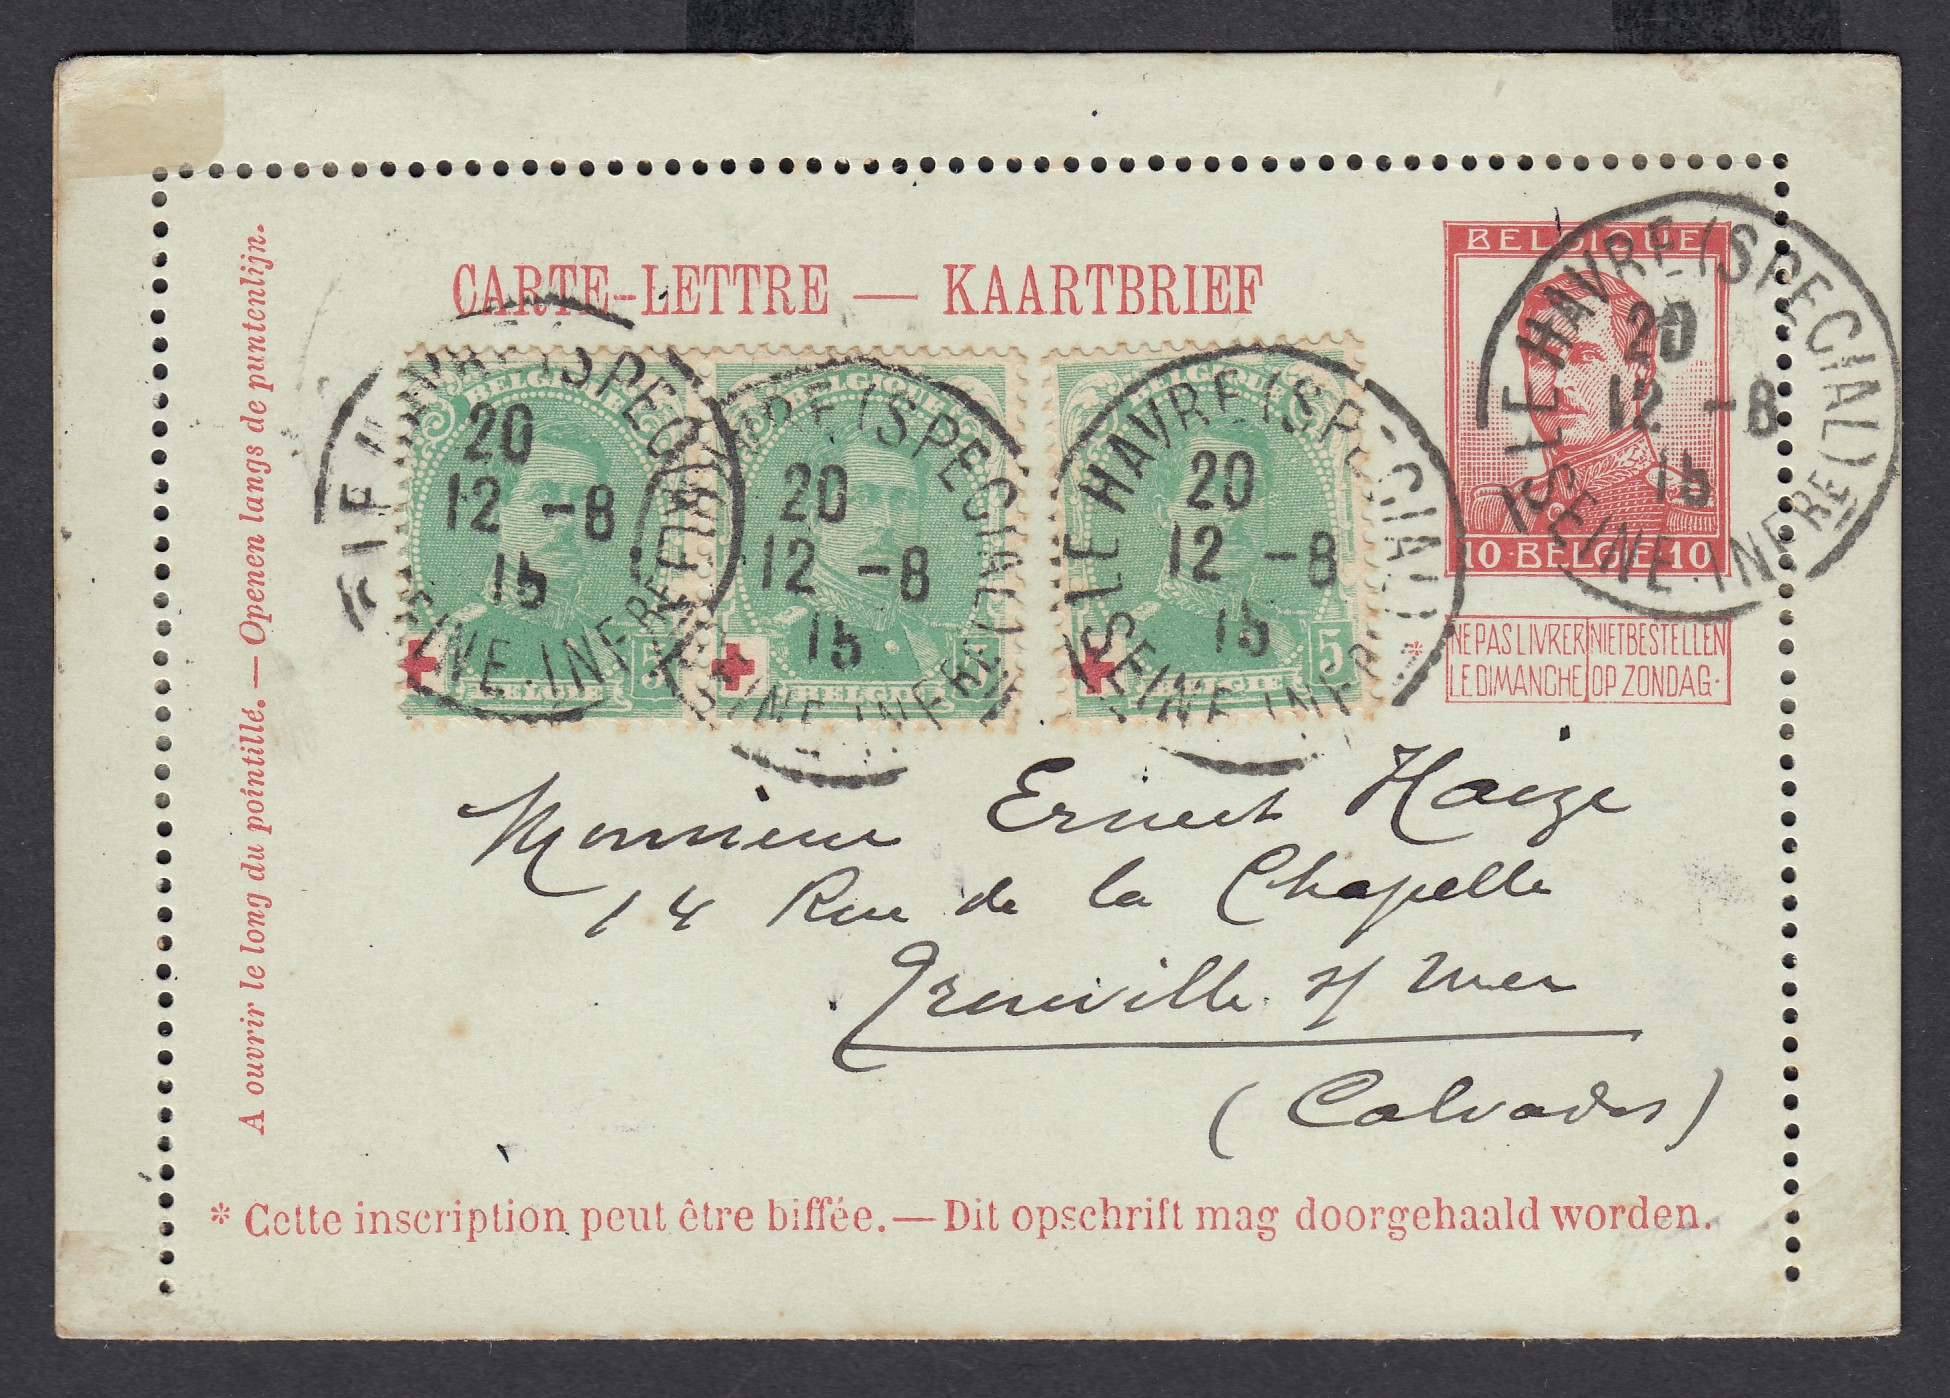 CARTE-LETTRE — KAARTBRIEF
A ouvrir le long du pointillé. — Openen langs de puntenlijn.
BELGIQUE
10 · BELGIE · 10
NE PAS LIVRER LE DIMANCHE
NIET BESTELLEN OP ZONDAG.
*
LE HAVRE (SPECIAL)
20
12 -8
15
SEINE-INFRE
BELGIQUE
BELGIE 5
LE HAVRE (SPECIAL)
20
12 -8
15
SEINE-INFRE
BELGIQUE
BELGIE
LE HAVRE (SPECIAL)
20
12 -8
15
SEINE-INFRE
BELGIQUE
BELGIE 5
LE HAVRE (SPECIAL)
20
12 -8
15
SEINE-INFRE
Monsieur Ernest Haize
14 Rue de la Chapelle
Trouville s/ Mer
(Calvados)
* Cette inscription peut être biffée. — Dit opschrift mag doorgehaald worden.